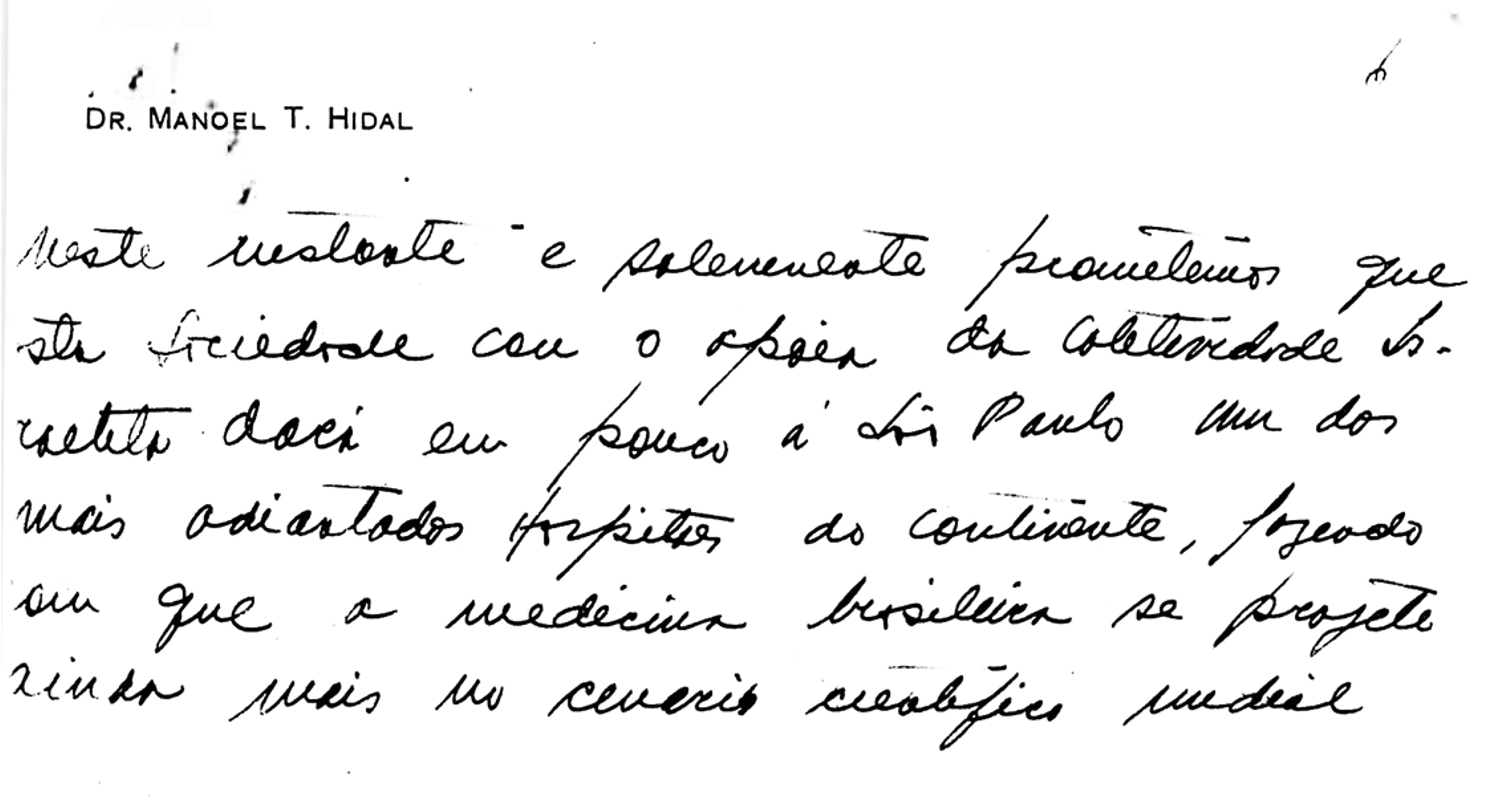 6
DR. MANOEL T. HIDAL
Neste instante e solenemente prometemos que
sta Sociedade com o apoio da Coletividade Is-
raelita dará em pouco á São Paulo um dos
mais adiantados Hospitaes do continente, fazendo
om que a medicina brasileira se projete
ainda mais no cenario cientifico mundial